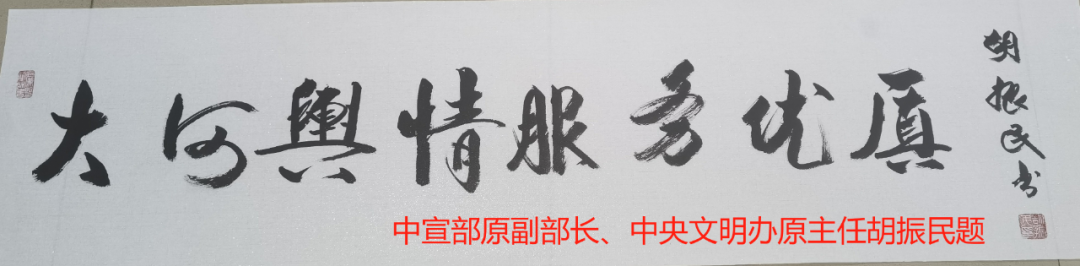 大河舆情服务优质
胡振民书
中宣部原副部长、中央文明办原主任胡振民题